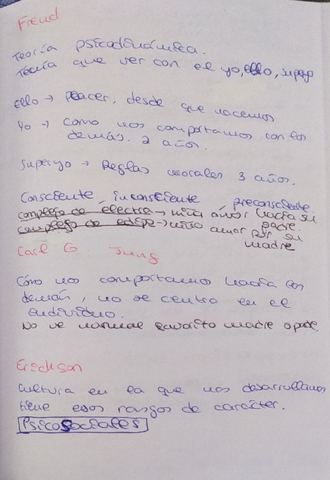 Freud
Teoría psicodinámica.
Teoría que ver con el yo, ello, superyo
Ello → Placer, desde que nacemos
Yo → Como nos comportamos con los
demás. 2 años.
Superyo → Reglas morales 3 años.
Consciente, inconsciente, preconsciente.
complejo de electra → niña amor hacia su
padre.
complejo de edipo → niño amor por su
madre
Carl G Jung
Cómo nos comportamos hacía los
demás, no se centra en el
individuo.
No ve normal favorito madre o padre.
Erickson
Cultura en la que nos desarrollamos
tiene esos rasgos de carácter.
Psicosociales